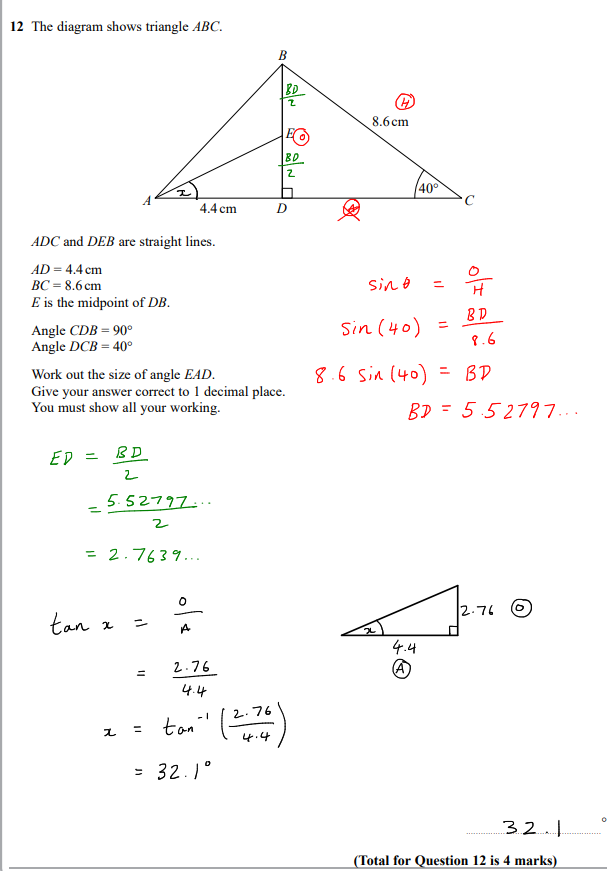 12 The diagram shows triangle ABC.
B
BD
2
H
8.6 cm
E O
BD
2
x
40°
A
4.4 cm
D
A
C
ADC and DEB are straight lines.
AD = 4.4 cm
BC = 8.6 cm
E is the midpoint of DB.
Angle CDB = 90°
Angle DCB = 40°
Work out the size of angle EAD.
Give your answer correct to 1 decimal place.
You must show all your working.
sin θ = O/H
sin (40) = BD/8.6
8.6 sin (40) = BD
BD = 5.52797...
ED = BD/2
= 5.52797.../2
= 2.7639...
tan x = O/A
= 2.76/4.4
x = tan⁻¹ (2.76/4.4)
= 32.1°
x
2.76 O
4.4
A
32.1 °
(Total for Question 12 is 4 marks)